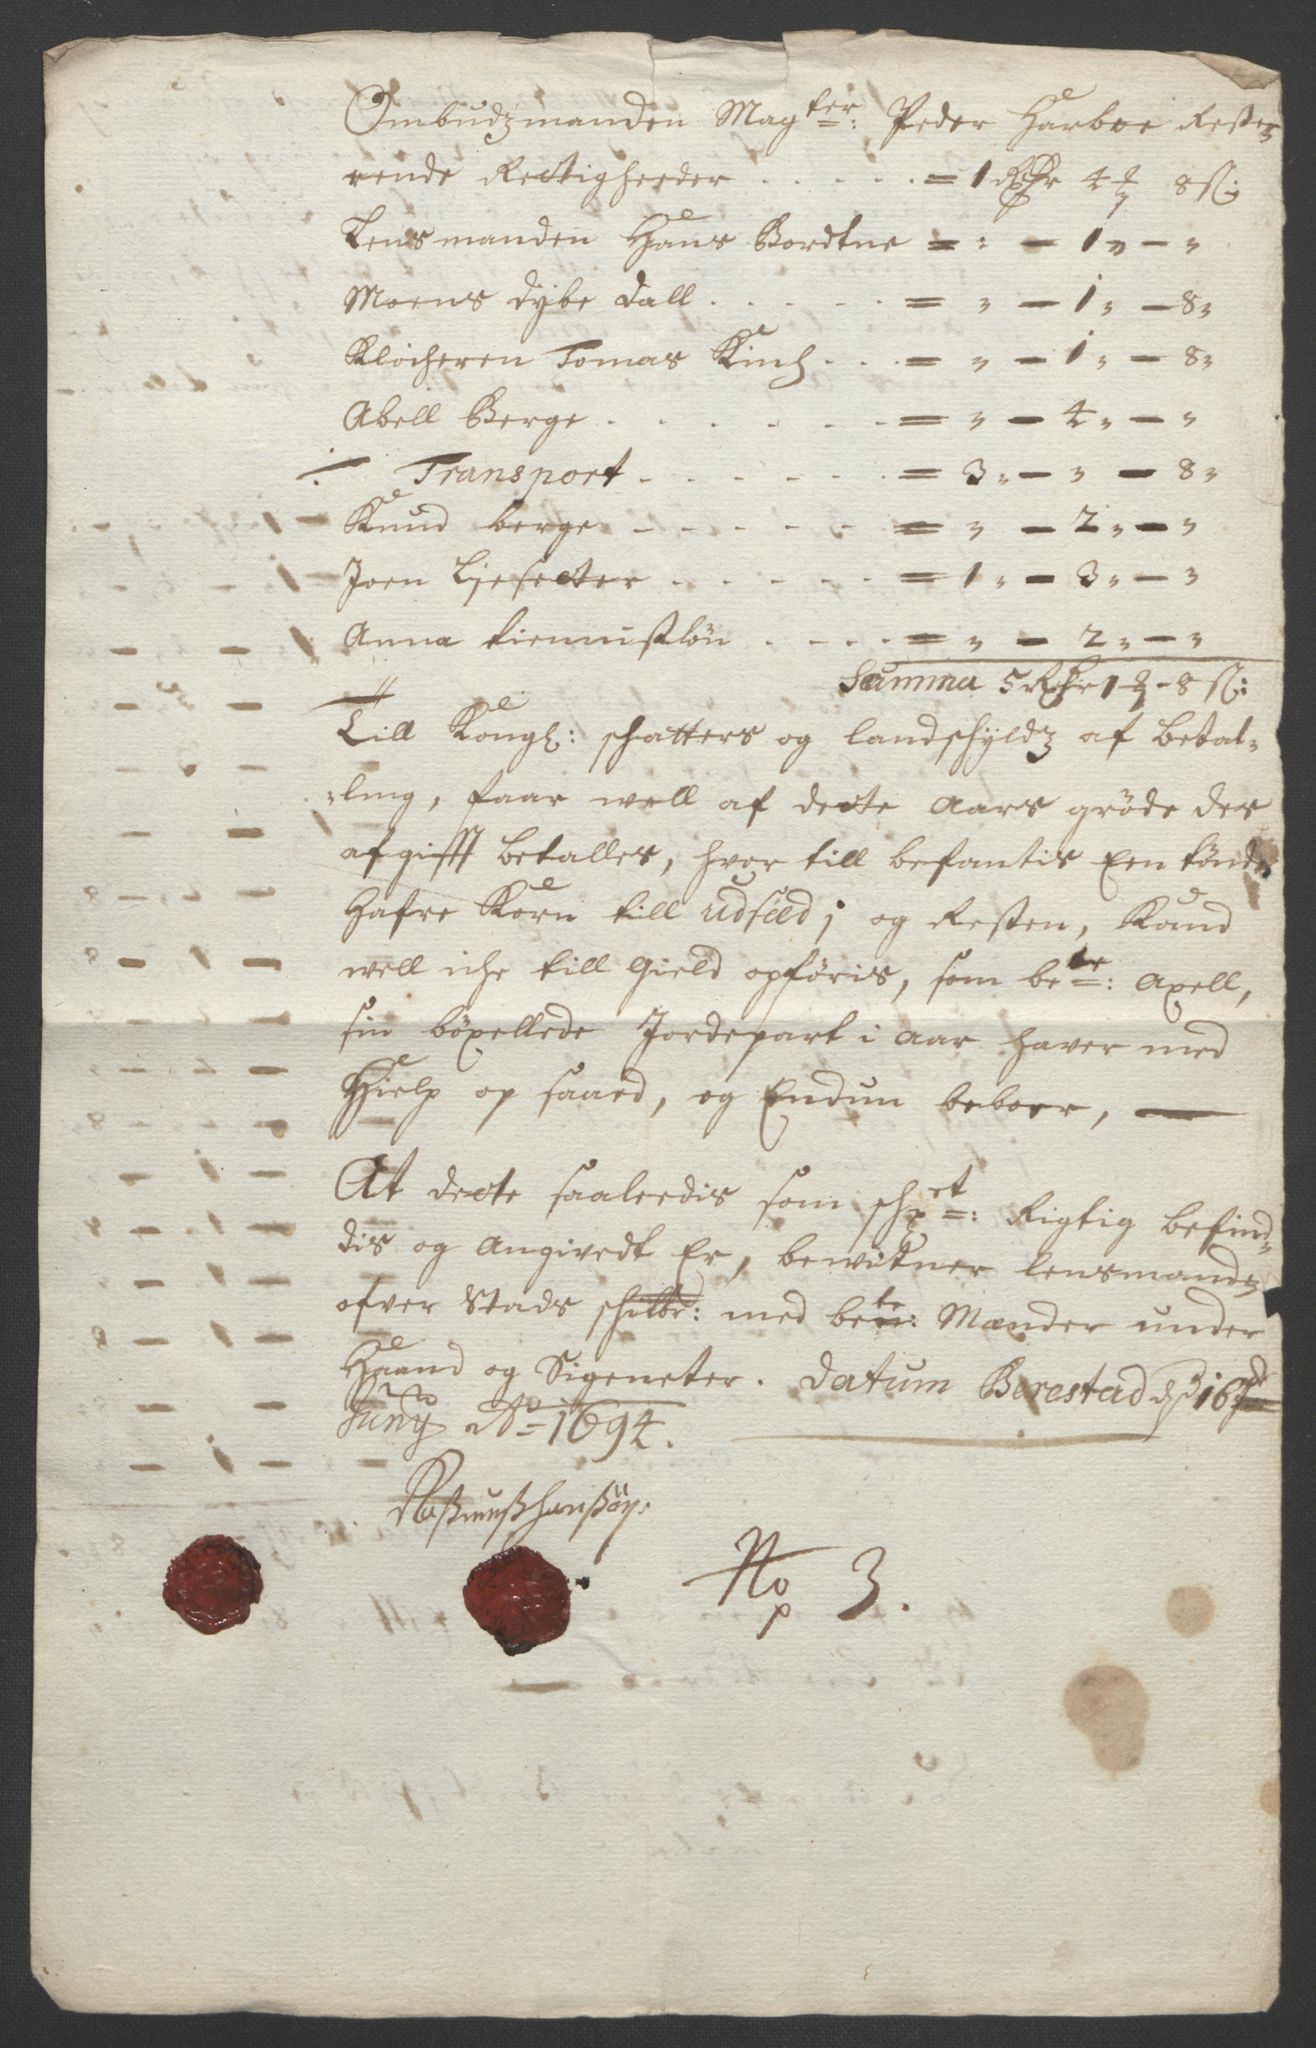 Ombudzmanden Mag ter: Peder Harboe Reste-
rende Rectigheeder . . . . . = 1 Rdr 4 ₰ 8 sz:
Lensmanden Hans Bordtne = : — 1 „ — „
Moens dybe dall . . . . . = „ — 1 „ — 8 „
Klocheren Tomas Kinch . . . = „ — 1 „ — 8 „
Abell Berge . . . . . . = „ — 4 „ — „
÷ Transport . . . . . . = 3 „ — „ — 8 „
Knud berge - - - - - = „ — 2 „ — „
Joen Ljesetter . . . . . = 1 „ — 3 „ — „
Anna tiennistløn . . . . = „ — 2 „ — „
Summa 5 Rdr 1 ₰ - 8 sz:
Till Kongl: schatters og landschyldz af betal-
-ling, faar well af dette aars gröde des
afgifft betalles, hvor till befantis Een tönde
Hafre Korn till udsæd; og Resten, Kand
well iche till Gield opföris, som be te: Axell,
sin böxellede Jordepart i aar haver med
Hielp op saaed, og Endun beboer, —
At dette saaledis som sch et: Rigtig befin-
dis og Angivedt Er, bewitner lensmanden
ofver Stads schibbr: med be te: Mænder under
Haand og Signeter. Datum Berestad d. 16 d
Juny Ao 1694.
Rasmuss hanssøn
No 3.